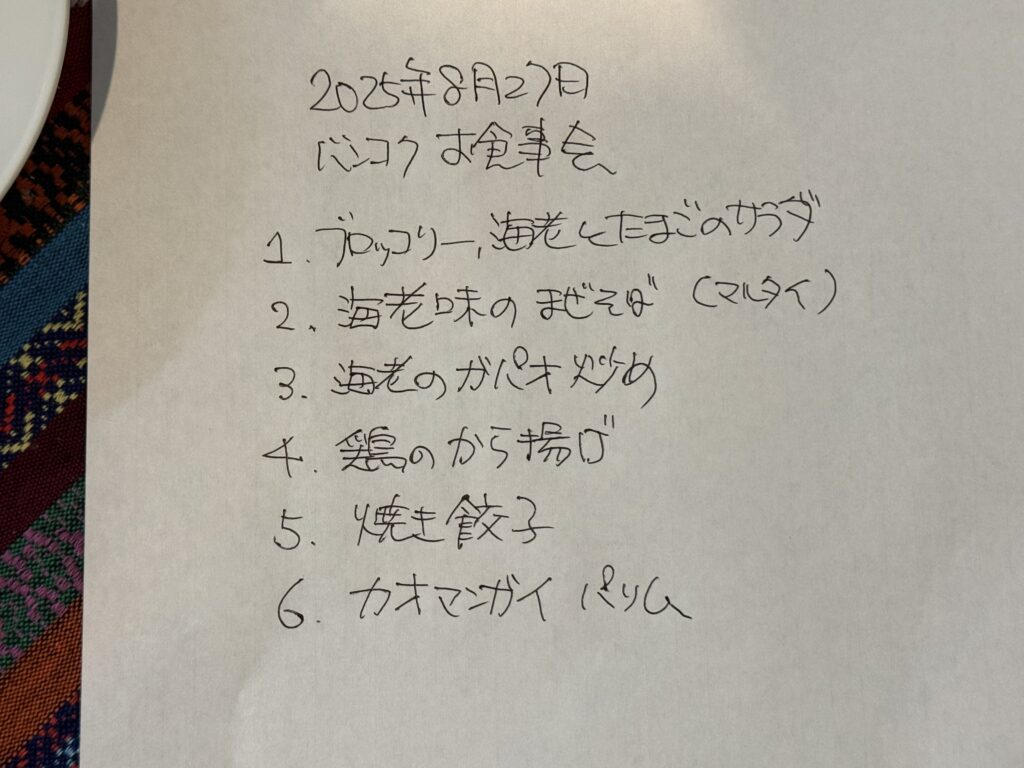 2025年8月27日
バンコク お食事会
1. ブロッコリー, 海老とたまごのサラダ
2. 海老味の まぜそば (マルタイ)
3. 海老のガパオ炒め
4. 鶏のから揚げ
5. 焼き餃子
6. カオマンガイ パリム